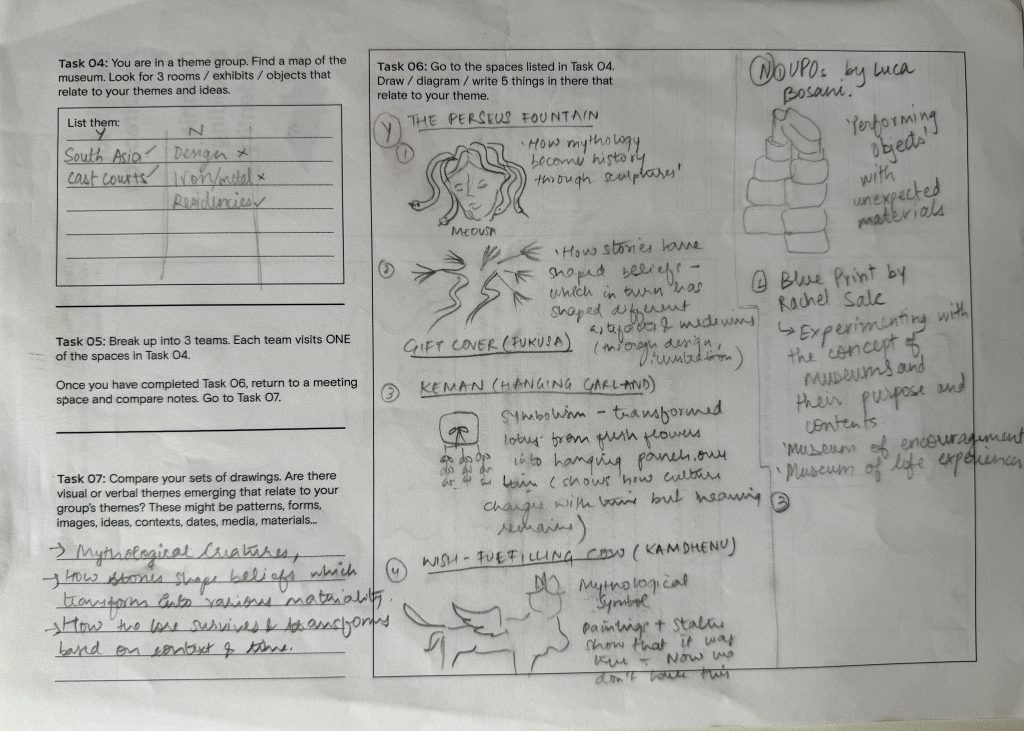 Task 04: You are in a theme group. Find a map of the
museum. Look for 3 rooms / exhibits / objects that
relate to your themes and ideas.
List them:
Y N
South Asia ✓ Design ×
Cast courts ✓ Iron/metal ×
Residencies ✓
Task 05: Break up into 3 teams. Each team visits ONE
of the spaces in Task 04.
Once you have completed Task 06, return to a meeting
space and compare notes. Go to Task 07.
Task 07: Compare your sets of drawings. Are there
visual or verbal themes emerging that relate to your
group's themes? These might be patterns, forms,
images, ideas, contexts, dates, media, materials...
→ Mythological Creatures,
→ How stories shape beliefs which
transform into various materiality.
→ How survives & transforms
based on context & time.
Task 06: Go to the spaces listed in Task 04.
Draw / diagram / write 5 things in there that
relate to your theme.
Y THE PERSEUS FOUNTAIN
1 'How mythology
become history
through sculptures'
MEDUSA
2 'How stories have
shaped beliefs -
which in turn has
shaped different
artefacts & mediums
(through design,
GIFT COVER (FUKUSA)
3 KEMAN (HANGING GARLAND)
Symbolism - transformed
lotus from fresh flowers
into hanging panels, over
time (shows how culture
changes with time but meaning
remains)
4 WISH-FULFILLING COW (KAMDHENU)
Mythological
Symbol
Paintings + Statues
show that it was
true - Now we
don't have this
N 1 UPOs by Luca
Bosani.
'Performing
Objects'
with
unexpected
materials
2 Blue Print by
Rachel Sale
↳ Experimenting with
the concept of
museums and
their purpose and
contents
'Museum of encouragement'
'Museum of life experiences'
3